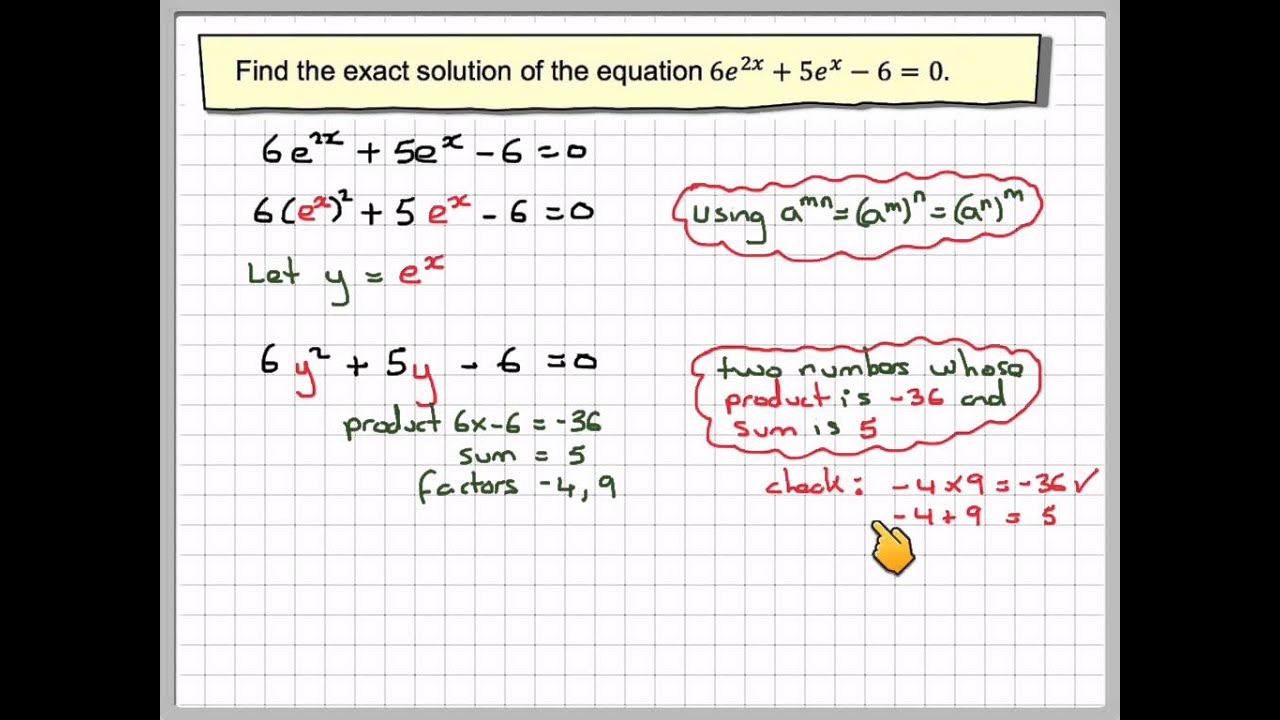 Find the exact solution of the equation 6e²ˣ + 5eˣ − 6 = 0.
6e²ˣ + 5eˣ − 6 = 0
6(eˣ)² + 5 eˣ − 6 = 0
using aᵐⁿ = (aᵐ)ⁿ = (aⁿ)ᵐ
Let y = eˣ
6y² + 5y − 6 = 0
product 6x−6 = −36
sum = 5
factors −4, 9
two numbers whose
product is −36 and
sum is 5
check: −4 × 9 = −36 ✓
−4 + 9 = 5